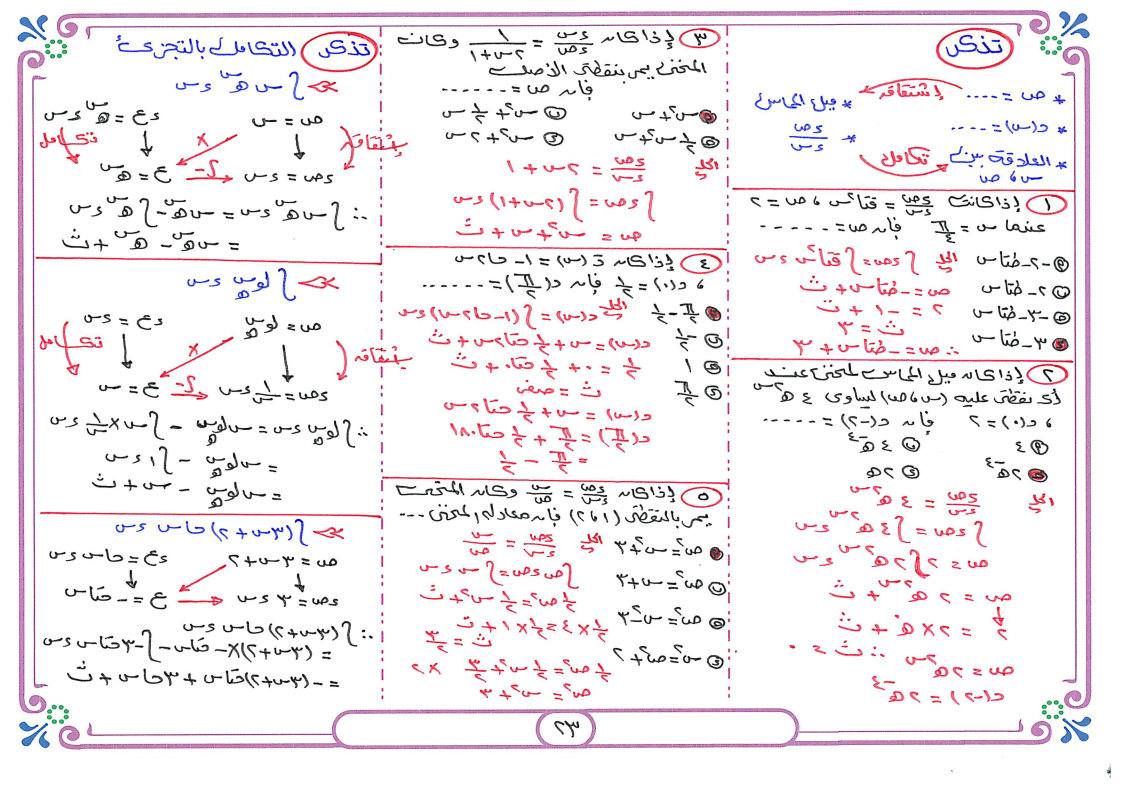 تذكر
* ص = .... إشتقاقه * ميل المماس
* د(س) = .... * ءص/ءس
* العلاقة بين س ، ص تكامل
١ إذا كانت ءص/ءس = قتا²س ، ص = ٢
عندما س = π/٤ فإن ص = .....
P -٢ - ظتاس
ب ٢ - ظتاس
ج -٣ - ظتاس
د ٣ - ظتاس
الحل ∫ءص = ∫قتا²س ءس
ص = - ظتاس + ث
٢ = -١ + ث
ث = ٣
∴ ص = - ظتاس + ٣
٢ إذا كان ميل المماس لمنحنى عند
أى نقطة عليه (س ، ص) يساوى ٤ هـ^٢س
، د(٠) = ٢ فإن د(-٢) = .....
P ٤
ب ٤ هـ^-٤
ج ٢ هـ^-٤
د ٢ هـ
الحل ءص/ءس = ٤ هـ^٢س
∫ءص = ∫٤ هـ^٢س ءس
ص = ٢∫٢ هـ^٢س ءس
ص = ٢ هـ^٢س + ث
٢ = ٢ × هـ^٠ + ث
∴ ث = ٠
ص = ٢ هـ^٢س
د(-٢) = ٢ هـ^-٤
٣ إذا كان ءس/ءص = ١/(٢س+١) وكان
المنحنى يمر بنقطة الأصل
فإن ص = ......
س² + س
ب س² + ١/٢ س
ج ١/٢ س² + س
د س² + ٢س
الحل ءص/ءس = ٢س + ١
∫ءص = ∫(٢س+١) ءس
ص = س² + س + ث
٤ إذا كان دَ(س) = ١ - حا٢س
، د(٠) = ١/٢ فإن د(π/٢) = ......
π/٢ - ١/٢
ب -١/٢
ج ١
د π/٢
الحل د(س) = ∫(١ - حا٢س) ءس
د(س) = س + ١/٢ حتا٢س + ث
١/٢ = ٠ + ١/٢ حتا٠ + ث
ث = صفر
د(س) = س + ١/٢ حتا٢س
د(π/٢) = π/٢ + ١/٢ حتا١٨٠
= π/٢ - ١/٢
٥ إذا كان ءص/ءس = س/ص وكان المنحنى
يمر بالنقطة (١ ، ٢) فإن معادلة المنحنى ...
ص² = س² + ٣
ب ص² = س + ٣
ج ص² = س² - ٣
د س² = ص² + ٢
الحل ءص/ءس = س/ص
∫ص ءص = ∫س ءس
١/٢ ص² = ١/٢ س² + ث
١/٢ × ٤ = ١/٢ × ١ + ث
ث = ٣/٢
١/٢ ص² = ١/٢ س² + ٣/٢ × ٢
ص² = س² + ٣
تذكر التكامل بالتجزئ
∫س هـ^س ءس
ص = س ءع = هـ^س ءس
إشتقاقه × تكامل
ءص = ءس -∫ ع = هـ^س
∴ ∫س هـ^س ءس = س هـ^س - ∫هـ^س ءس
= س هـ^س - هـ^س + ث
∫لو_هـ س ءس
ص = لو_هـ س ءع = ءس
إشتقاقه × تكامل
ءص = ١/س ءس -∫ ع = س
∴ ∫لو_هـ س ءس = س لو_هـ س - ∫س × ١/س ءس
= س لو_هـ س - ∫١ ءس
= س لو_هـ س - س + ث
∫(٣س+٢) حاس ءس
ص = ٣س + ٢ ءع = حاس ءس
ءص = ٣ ءس ع = - حتاس
∴ ∫(٣س+٢) حاس ءس
= (٣س+٢) × - حتاس - ∫-٣ حتاس ءس
= -(٣س+٢) حتاس + ٣ حاس + ث
٢٣